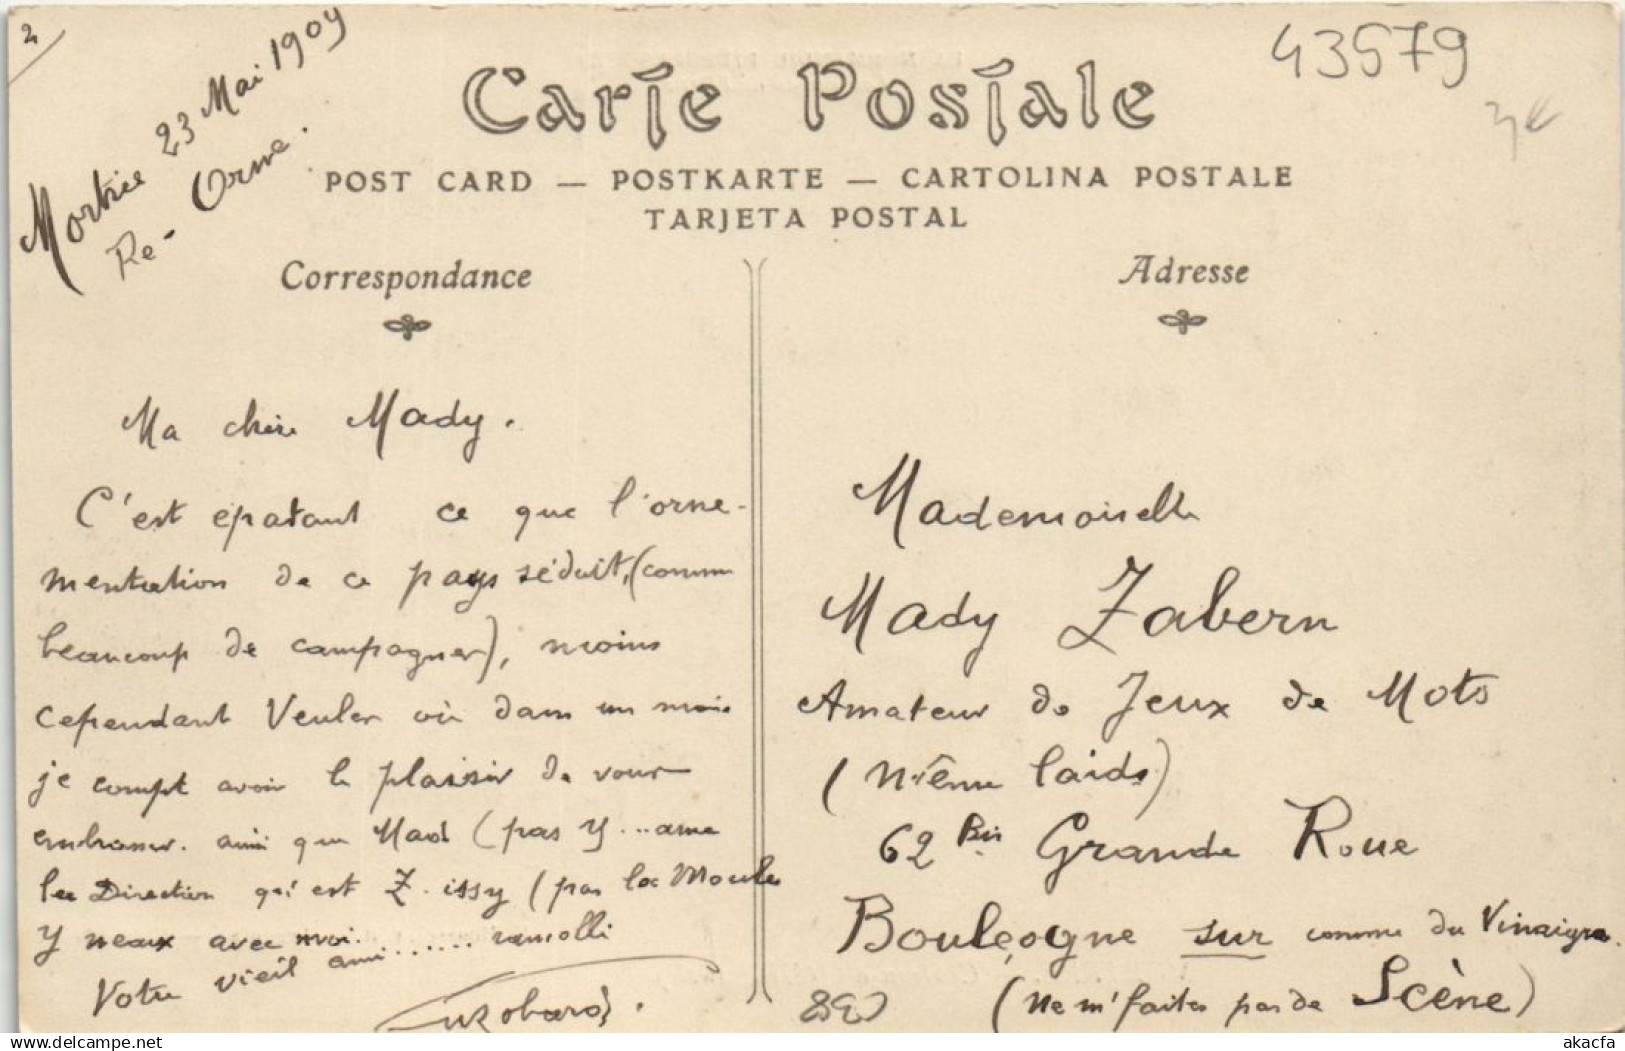 2
43579
3€
Mortrée 23 Mai 1909
Re - Orne.
Carte Postale
POST CARD — POSTKARTE — CARTOLINA POSTALE
TARJETA POSTAL
Correspondance
Adresse
Ma chère Mady.
C'est epatant ce que l'orne-
mentation de ce pays séduit, (comme
beaucoup de campagner), moins
cependant Veuler où dans un mois
je compte avoir le plaisir de vous
embrasser. ainsi que Mad (pas Y...ame
les Direction qui est Z. issy (pas la Moule
Y neaux avec moi.
Votre vieil ami....... ramolli
Mademoiselle
Mady Zabern
Amateur de Jeux de Mots
(N'ième laids)
62 Bis Grande Roue
Bouleçogne sur comme du Vinaigre.
(Ne m'faites pas de Scène)
akacfa